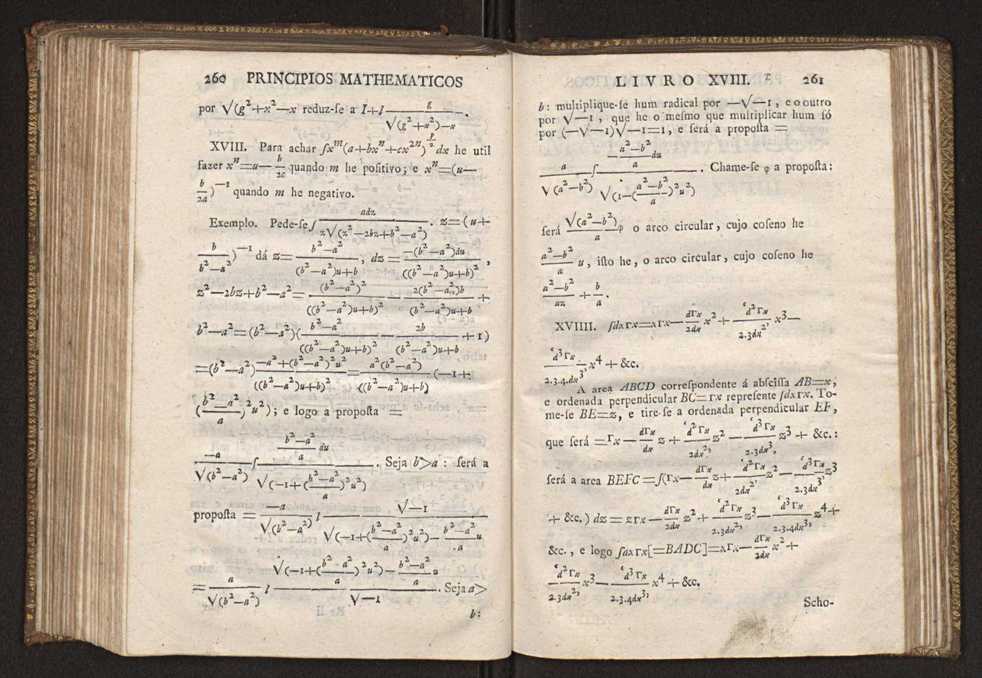 260 PRINCIPIOS MATHEMATICOS
por √(g²+x²—x reduz-ſe a l+l g/√(g²+x²)—x.
XVIII. Para achar ſx^m(a+bx^n+cx^{2n})^{p/2}dx he util
fazer x^n=u—b/2c quando m he poſitivo; e x^n=(u—
b/2a)^{—1} quando m he negativo.
Exemplo. Pede-ſe ſ adz/z√(z²—2bz+b²—a²). z=(u+
b/(b²—a²))^{—1} dá z=(b²—a²)/((b²—a²)u+b), dz=—(b²—a²)du/((b²—a²)u+b)²,
z²—2bz+b²—a²=(b²—a²)²/((b²—a²)u+b)²—2(b²—a²)b/((b²—a²)u+b+
b²—a²=(b²—a²)(b²—a²/((b²—a²)u+b)²—2b/(b²—a²)u+b+1)
=(b²—a²)—a²+(b²—a²)²u²/((b²—a²)u+b)²=a²(b²—a²)/((b²—a²)u+b)(—1+
(b²—a²/a)²u²); e logo a propoſta =
—a/√(b²—a²) ſ (b²—a²/a)du/√(—1+(b²—a²/a)²u²). Seja b>a: ſerá a
propoſta = —a/√(b²—a²) l √—1/√(—1+(b²—a²/a)²u²)—b²—a²/a u
=a/√(b²—a²) l √(—1+(b²—a²/a)²u²)—b²—a²/a u/√—1. Seja a>
b:
LIVRO XVIII. 261
b: multiplique-ſe hum radical por —√—1, e o outro
por √—1, que he o meſmo que multiplicar hum ſó
por (—√—1)√—1=1, e ſerá a propoſta =
a/√(a²—b²) ſ —(a²—b²/a)du/√(1—(a²—b²/a)²u²). Chame-ſe φ a propoſta:
ſerá √(a²—b²)/a φ o arco circular, cujo coſeno he
a²—b²/a u, iſto he, o arco circular, cujo coſeno he
a²—b²/az+b/a.
XVIIII. ſdxΓx=xΓx—dΓx/2dx x²+d²Γx/2.3dx², x³—
d³Γx/2.3.4dx³, x⁴+&c.
A area ABCD correſpondente á abſciſſa AB=x,
e ordenada perpendicular BC=Γx repreſente ſdxΓx. To-
me-ſe BE=z, e tire-ſe a ordenada perpendicular EF,
que ſerá =Γx—dΓx/dx z+d²Γx/2dx², z²—d³Γx/2.3dx³, z³+&c.:
ſerá a area BEFC=ſ(Γx—dΓx/dx z+d²Γx/2dx² z²—d³Γx/2.3dx³ z³
+&c.)dz=zΓx—dΓx/2dx z²+d²Γx/2.3dx², z³—d³Γx/2.3.4dx³, z⁴+
&c., e logo ſdxΓx[=BADC]=xΓx—dΓx/2dx x²+
d²Γx/2.3dx², x³—d³Γx/2.3.4dx³, x⁴+&c.
Scho-